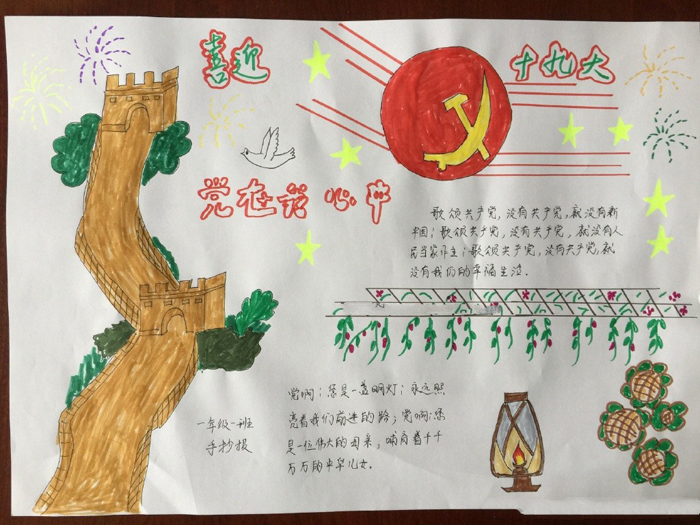 喜迎
十九大
党在我心中
歌颂共产党，没有共产党，就没有新
中国；歌颂共产党，没有共产党，就没有人
民当家作主；歌颂共产党，没有共产党，就
没有我们的幸福生活。
党啊；您是一盏明灯；永远照
亮着我们前进的路；党啊：您
是一位伟大的母亲，哺育着千千
万万的中华儿女。
一年级一班
手抄报